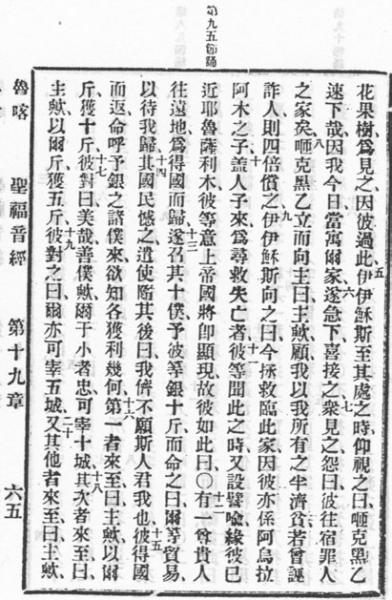 第九五端誦
花果樹、爲見之、因彼過此、伊伊穌斯至其處之時、仰視之曰、咂克黑乙
速下哉、因我今日當寓爾家、遂急下喜接之、衆見之、怨曰、彼往宿罪人
之家矣、咂克黑乙立而向主曰、主歟、顧我以我所有之半濟貧、若曾誣
詐人、則四倍償之、伊伊穌斯向之曰、今拯救臨此家、因彼亦係阿烏拉
阿木之子、盖人子來、爲尋救失亡者、彼等聞此之時、又設譬喩、緣彼已
近耶魯薩利木、彼等意上帝國將卽顯現、故彼如此曰、○有一尊貴人
往遠地、爲得國而歸、遂召其十僕、予彼等銀十斤、而命之曰、爾等貿易
以待我歸、其國民憾之、遣使隨其後曰、我儕不願斯人君我也、彼得國
而返、命呼予銀之諸僕來、欲知各獲利幾何、第一者來至曰、主歟、以爾
斤獲十斤、彼對曰、美哉善僕歟、爾于小者忠、可宰十城、其次者來至曰、
主歟、以爾斤獲五斤、彼對之曰、爾亦可宰五城、又其他者來至曰、主歟、
魯喀 聖福音經 第十九章 六五